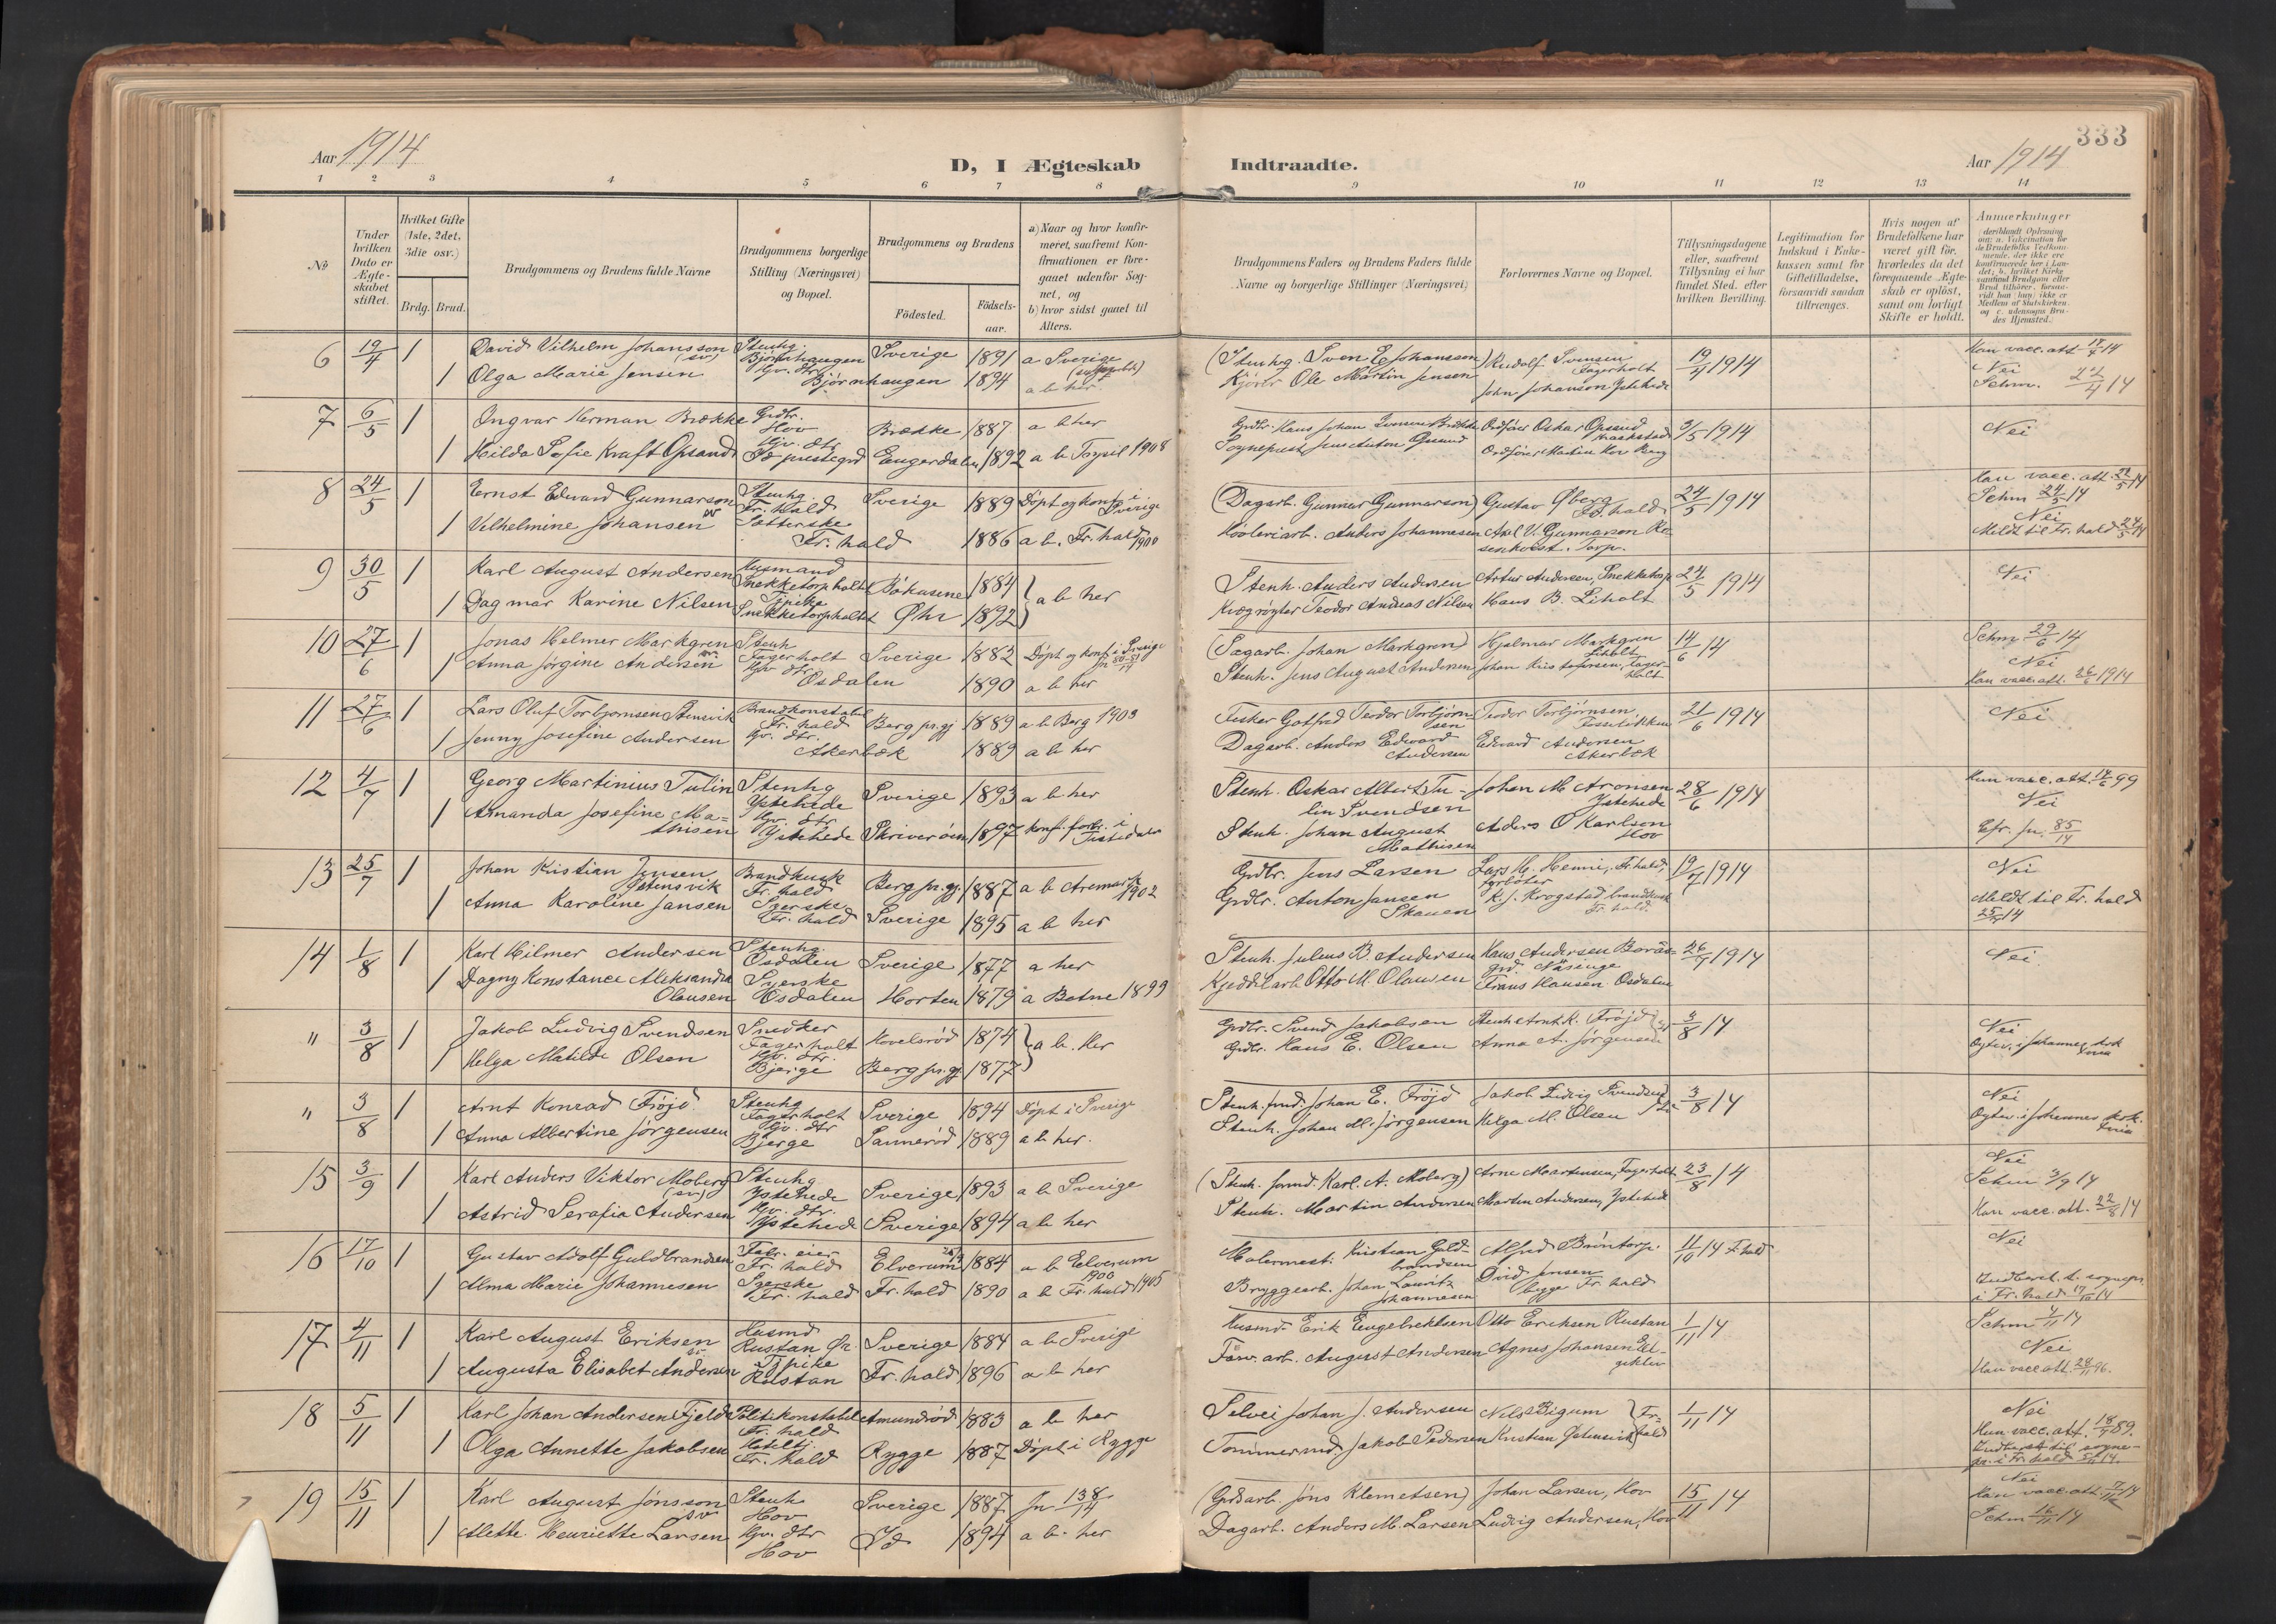 333
Aar 1914
D, I Ægteskab
Indtraadte.
Aar 1914
1 2 3 4 5 6 7 8 9 10 11 12 13 14
No
Under hvilken Dato er Ægteskabet stiftet.
Hvilket Gifte (1ste, 2det, 3die osv.)
Brdg. Brud.
Brudgommens og Brudens fulde Navne
Brudgommens borgerlige Stilling (Næringsvei) og Bopæl.
Brudgommens og Brudens
Födested.
Födsels-aar.
a) Naar og hvor konfirmeret, saafremt Konfirmationen er foregaaet udenfor Sognet, og
b) hvor sidst gaaet til Alters.
Brudgommens Faders og Brudens Faders fulde Navne og borgerlige Stillinger (Næringsvei)
Forlovernes Navne og Bopæl.
Tillysningsdagene eller, saafremt Tillysning ei har fundet Sted, efter hvilken Bevilling.
Legitimation for Indskud i Enkekassen samt for Giftetilladelse, forsaavidt saadan tiltrænges.
Hvis nogen af Brudefolkene har været gift för, hvorledes da det foregaaende Ægteskab er oplöst, samt om lovligt Skifte er holdt.
Anmærkninger
6 19/4 1 David Vilhelm Johansson (sv) Stenhg. Bjørnhaugen Sverige 1891 a Sverige (Stenhg. Sven E Johansson) Rudolf Svensen Fagerholt 19/4 1914
1 Olga Marie Jensen Hjv. dtr Bjørnhaugen 1894 a b her Kjører Ole Martin Jensen Johan Johanson Ystehede Nei
7 6/5 1 Ingvar Herman Brække Grdbr. Hov Brække 1887 a b her Ordfører Oskar Opsand 3/5 1914 Nei
1 Hilda Sofie Kraft Opsand Hjv. dtr Id prestegrd Engerdalen 1892 a b Trysil 1908 Sogneprest Jens Anton Opsand Ordfører Martin Hov Berg
8 24/5 1 Ernst Edward Gunnarson sv Stenhg. Fr. hald Sverige 1889 Døpt og konf i Sverige (Dagarb. Gunnar Gunnarson) Gustav Øberg Fr. hald 24/5 1914 Sehm 24/5 14
1 Vilhelmine Johansen Fr. hald 1886 a b. Fr. hald 1900 Anders Johannesen Axel V. Gunnarson Rosenkvist. Torp. Nei Meldt til Fr. hald 24/5 14
9 30/5 1 Karl August Andersen Husmand Snekketorpholtet 1884 a b her Stenh. Anders Andersen Artur Andersen, Snekketorp 24/5 1914 Nei
1 Dagmar Karine Nilsen Tjpike Snekketorpholtet Øhr 1892 Teodor Andreas Nilsen Hans B. Liholt
10 27/6 1 Jonas Helmer Markgren sv Stenh Fagerholt Sverige 1882 Døpt og konf i Sverige (Sagarb. Johan Markgren) Hjalmar Markgren Liholt 14/6 14 Sehm 29/6 14
1 Anna Jørgine Andersen Hjv dtr Osdalen 1890 a b her Stenh. Jens August Andersen Johan Kristofersen, Fagerholt Nei
11 27/6 1 Lars Oluf Torbjørnsen Stensvik Brandkonstabel Fr. hald Berg pr.gj 1889 a b Berg 1903 Fisker Gotfred Teodor Torbjørnsen Teodor Torbjørnsen 21/6 1914 Nei
1 Jenny Josefine Andersen Hjv. dtr. Akerbæk 1889 a b her Dagarb. Anders Edvard Andersen Edvard Andersen Akerbæk
12 4/7 1 Georg Martinius Tulin Stenhg Ystehede Sverige 1893 a b her Stenh. Oskar Albert Tulin Svendsen Johan M Aronsen Ystehede 28/6 1914 Nei
1 Amanda Josefine Mathisen Hjv. dtr Ystehede Skriverøen 1897 Stenh. Johan August Mathisen Anders O Karlson Hov
13 25/7 1 Johan Kristian Jensen Ystensvik Brandkusk Fr. hald Berg pr.gj. 1887 a b Aremark 1902 Grdbr. Jens Larsen Lars H. Henni, Fr. hald, fyrbøter 19/7 1914 Nei
1 Anna Karoline Jansen Syerske Fr. hald Sverige 1895 a b her Grdbr. Anton Jansen Skauen K. J. Krogstad brandkusk Fr. hald. Meldt til Fr. hald 25/7 14
14 1/8 1 Karl Hilmer Andersen Stenhg. Osdalen Sverige 1877 a her Stenh. Julius B. Andersen Hans Andersen 26/7 1914 Nei
1 Dagny Konstance Aleksandra Olausen Syerske Osdalen Horten 1879 a Botne 1899 Kjeddelarb Otto M. Olausen Frans Hansen Osdalen
" 3/8 1 Jakob Ludvig Svendsen Snedker Fagerholt 1874 a b. Her Grdbr. Svend Jakobsen Stenh Arnt K. Frøjd 3/8 14 Nei
1 Helga Matilde Olsen Hjv. dtr. Bjerge Berg pr.gj 1877 Grdbr. Hans E. Olsen Anna A. Jørgensen
" 3/8 1 Arnt Konrad Frøjd Stenhg Fagerholt Sverige 1894 Døpt i Sverige Stenh. fmd. Johan E. Frøjd Jakob Ludvig Svendsen 3/8 14 Nei
1 Anna Albertine Jørgensen Hjv. dtr Bjerge Sannerød 1889 a b her. Stenh. Johan M. Jørgensen Helga M. Olsen
15 3/9 1 Karl Anders Viktor Moberg (sv) Stenhg Ystehede Sverige 1893 a b Sverige (Stenh. formd. Karl. A. Moberg) Arne Martinsen, Fagerholt 23/8 14 Nei Sehm 3/9 14
1 Astrid Serafia Andersen Hjv. dtr. Ystehede Sverige 1894 a b her Stenh. Martin Andersen Martin Andersen, Ystehede Han vacc. att. 22/8 14
16 17/10 1 Gustav Adolf Guldbrandsen Fabr. eier Fr. hald Elverum 1884 a b Elverum 1900 Malermest. Kristian Guldbrandsen Alfred Brøntorp. 11/10 14 F. hald Nei
1 Alma Marie Johannesen Syerske Fr. hald Fr. hald 1890 a b Fr. hald 1905 Bryggearb. Johan Lauritz Johannesen Øvid Jensen Fr. hald Indberet. t. sognepr i Fr. hald 17/10 14
17 4/11 1 Karl August Eriksen sv Husmd Rustan Sverige 1884 a b Sverige Husmd. Erik Engebrektsen Otto Eriksen Rustan 1/11 14 Sehm 4/11 14 Nei
1 Augusta Elisabet Andersen Tjpike Rustan Fr. hald 1896 a b her Farv. arb. August Andersen Agnes Johansen
18 5/11 1 Karl Johan Andersen Fjeld Politikonstabel Fr. hald Amundrød 1883 a b her Selvei Johan J. Andersen Nels Bigum Fr. hald 1/11 14 Nei
1 Olga Annette Jakobsen Fr. hald Rygge 1887 Døpt i Rygge Tømmermd. Jakob Pedersen Kristian Ystensvik Indberet til sognepr. i Fr. hald 5/11 14.
19 15/11 1 Karl August Jönsson sv Stenh Hov Sverige 1887 Jn 138/14 (Grdsarb. Jöns Klemetsen) Johan Larsen, Hov 15/11 14 Nei
1 Alette Henriette Larsen Hjv. dtr Hov Id 1894 a b. her Dagarb. Anders M. Larsen Ludvig Andersen, Hov Sehm 16/11 14